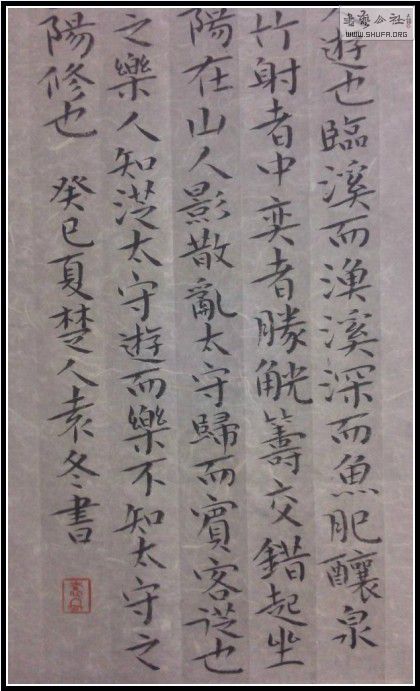 遊也臨溪而漁溪深而魚肥釀泉
竹射者中奕者勝觥籌交錯起坐
陽在山人影散亂太守歸而賓客從也
之樂人知從太守遊而樂不知太守之
陽修也 癸巳夏楚人袁冬書
書藝公社
WWW.SHUFA.ORG